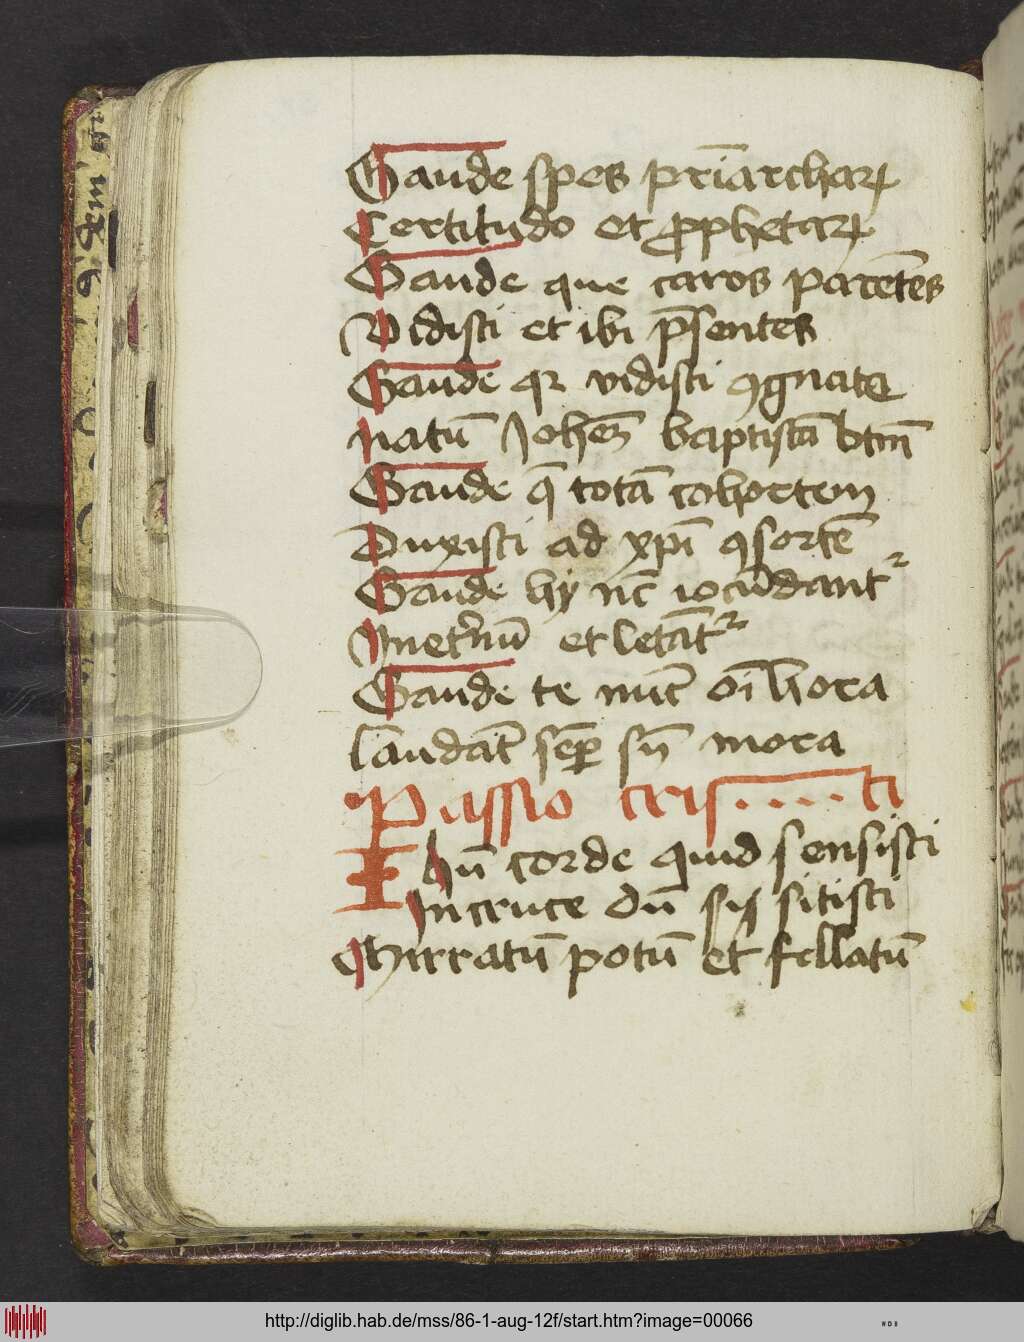 Gaude spes pr̄iarcharꝝ
Certitudo et ꝓphetarꝝ
Gaude que caros parēt̄es
Vidisti et ibi p̄sentes
Gaude qꝛ vidisti ꝯgnate
natū Johem̄ baptistā btm̄
Gaude q̄ totā cohortem
Duxisti ad xp̄i ꝯsortē
Gaude hy nc̄ iocūdantᷣ
Inet̾nū et letāt᷑
Gaude te nūc om̄i hora
laudāt sēꝑ sn̄ mora
Passio cris.....ti
Ihū corde quid sensisti
In cruce dū sis sitisti
Mirratū potū et fellatū
http://diglib.hab.de/mss/86-1-aug-12f/start.htm?image=00066